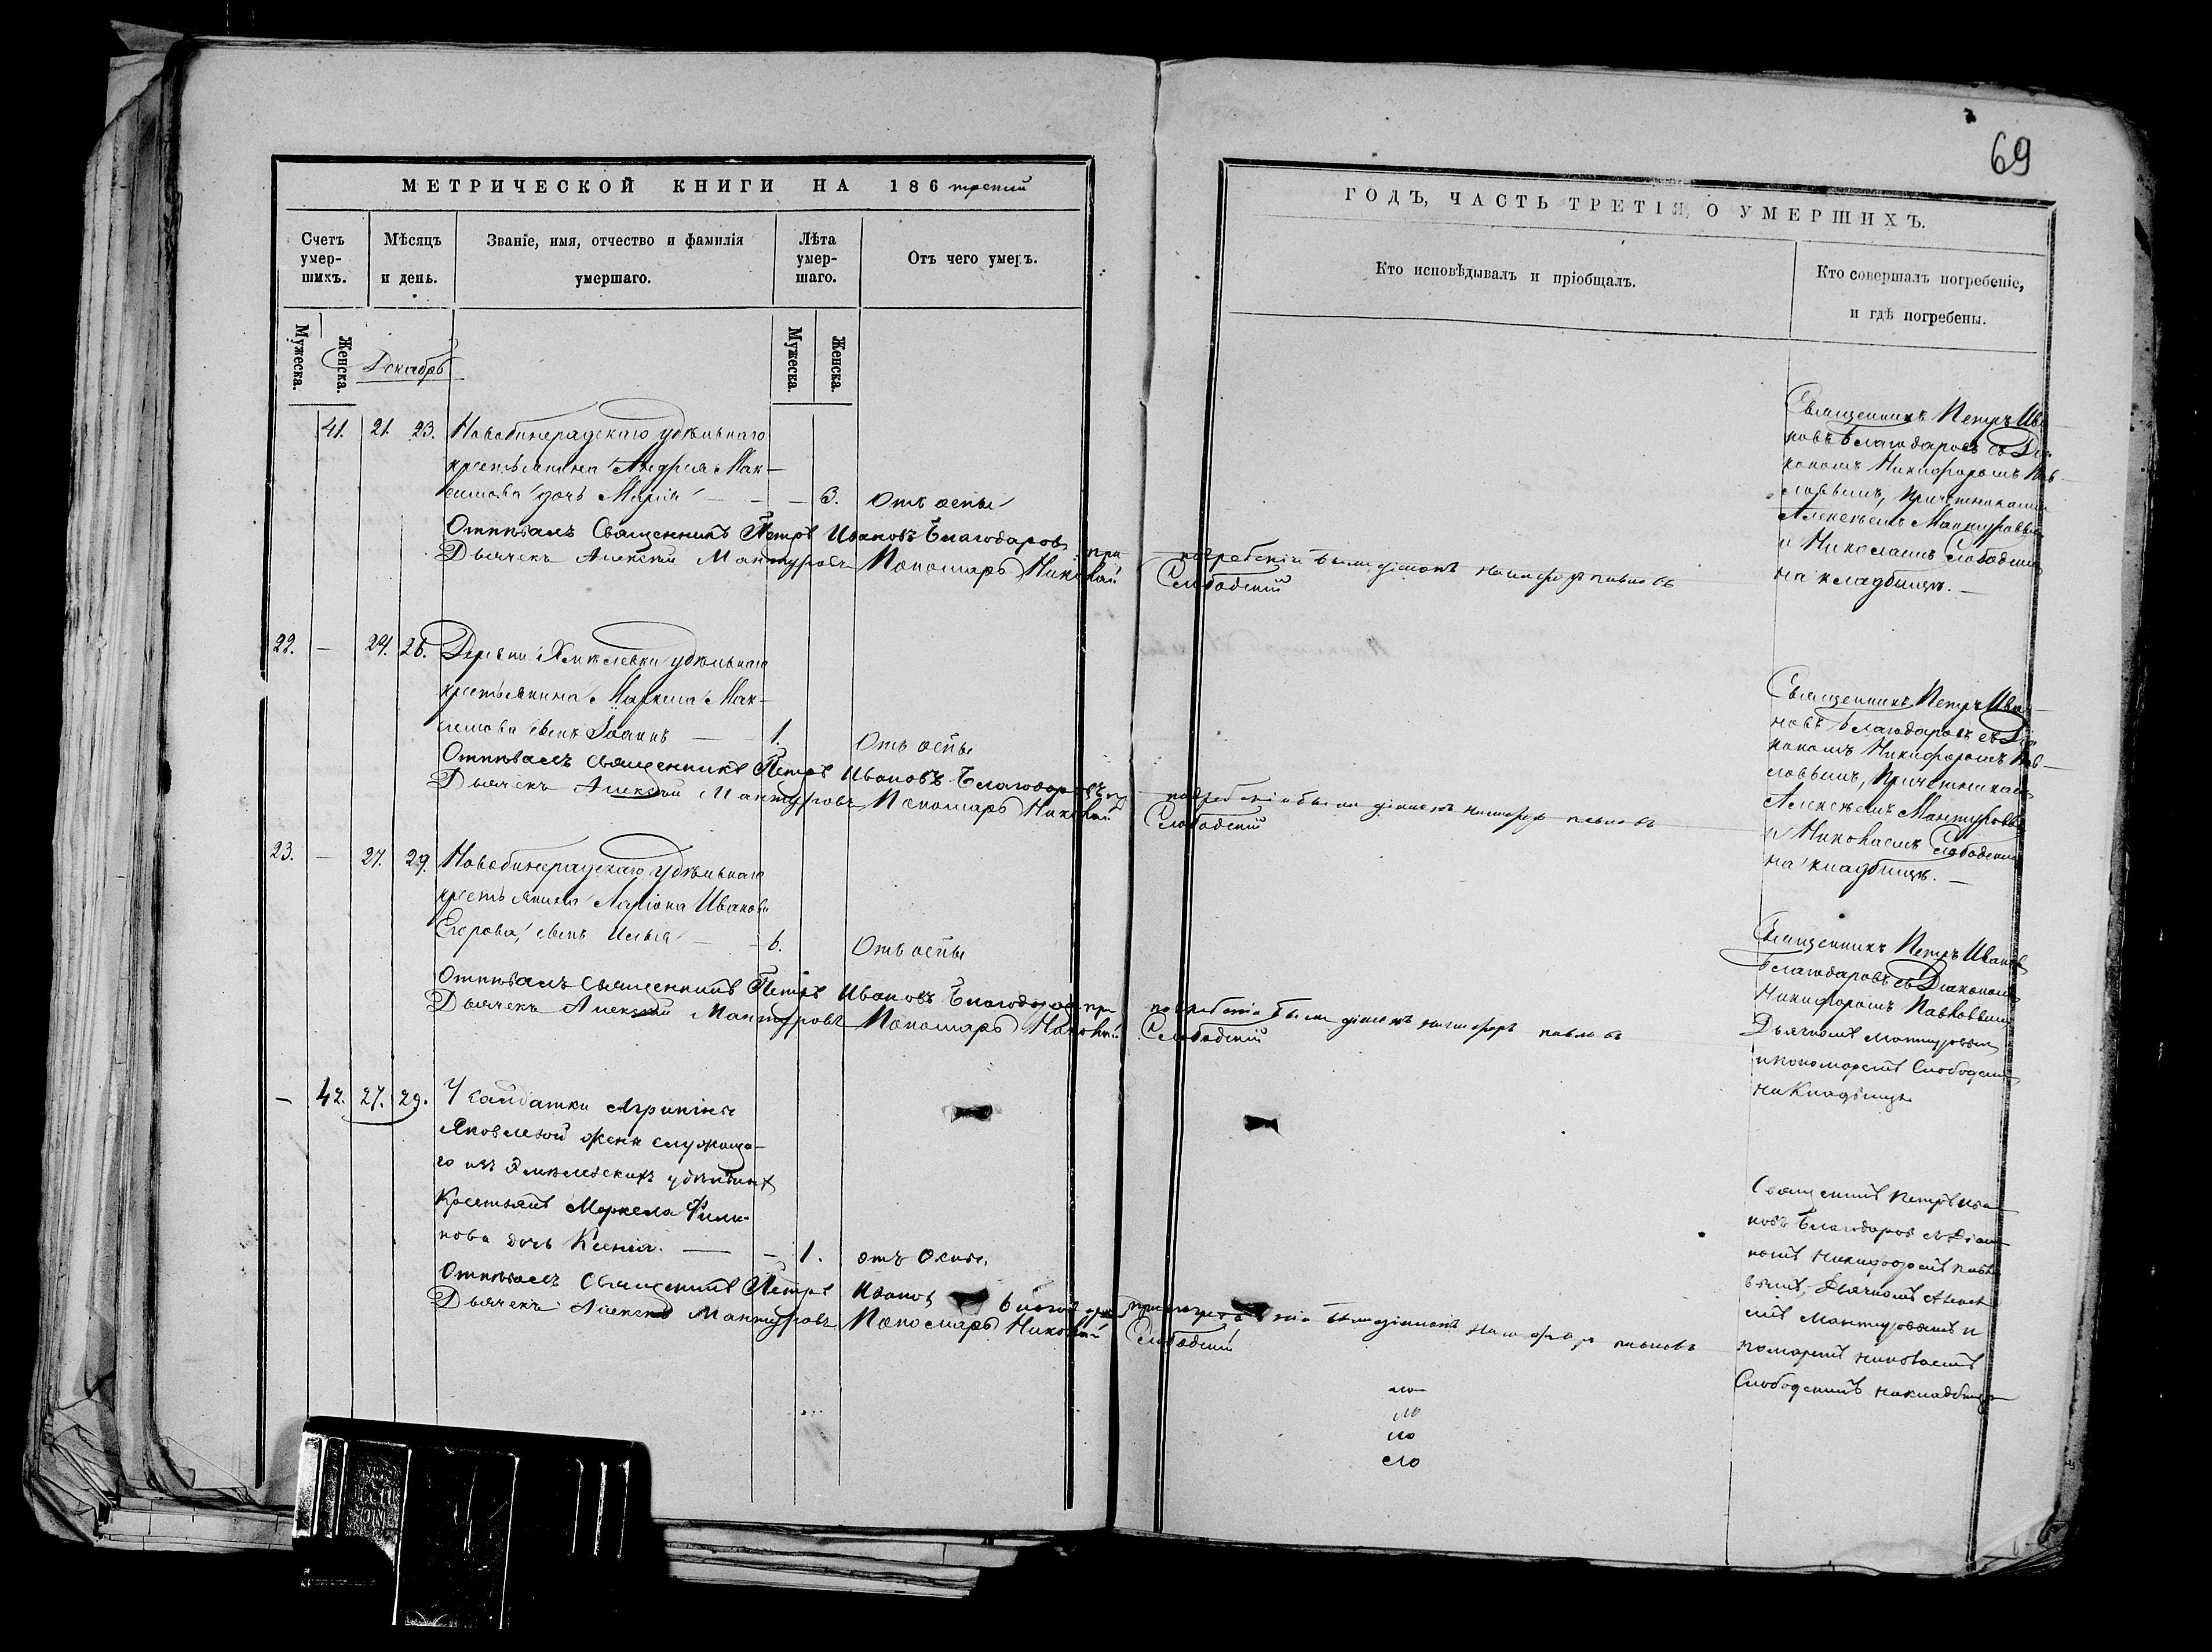 МЕТРИЧЕСКОЙ КНИГИ НА 186 третий
Счетъ умер-шихъ.
Мѣсяцъ и день.
Званіе, имя, отчество и фамилія умершаго.
Лѣта умер-шаго.
Отъ чего умеръ.
Мужеска.
Женска.
Декабрь
Мужеска.
Женска.
41. 21. 23. Новобинарадскаго удѣльнаго
крестьянина Андрея Мак-
симова дочь Марія — — 3. Отъ оспы
Отпѣвалъ Священникъ Петръ Ивановъ Благодаровъ при
Дьячекъ Алексѣй Мантуровъ Пономарь Николай
22. — 24. 26. Деревни Хмѣлевки удѣльнаго
крестьянина Маркела Мак-
симова сынъ Іоаннъ — 1. Отъ оспы
Отпѣвалъ священникъ Петръ Ивановъ Благодаровъ
Дьячекъ Алексѣй Мантуровъ Пономарь Николай
23. — 27. 29. Новобинарадскаго удѣльнаго
крестьянина Ларіона Иванова
Егорова, сынъ Илья — 6. Отъ оспы
Отпѣвалъ священникъ Петръ Ивановъ Благодаровъ при
Дьячекъ Алексѣй Мантуровъ Пономарь Николай
— 42. 27. 29. У салдатки Агрипины
Яковлевой жены служаща-
го изъ Хмѣлевскихъ удѣльныхъ
Крестьянъ Маркела Фили-
пова дочь Ксенія. — — 1. отъ Оспы.
Отпѣвалъ Священникъ Петръ Ивановъ
Дьячекъ Алексѣй Мантуровъ Пономарь Николай
69
ГОДЪ, ЧАСТЬ ТРЕТІЯ, О УМЕРШИХЪ.
Кто исповѣдывалъ и пріобщалъ.
Кто совершалъ погребеніе,
и гдѣ погребены.
погребеніи былъ діаконъ Никифоръ Павловъ
Слободскій
Священникъ Петръ Ива-
новъ Благодаровъ съ Діа-
кономъ Никифоромъ Пав-
ловымъ, Причетниками
Алексѣемъ Мантуровымъ
и Николаемъ Слободским
на кладбищѣ. —
погребеніи былъ діаконъ Никифоръ Павловъ
Слободскій
Священникъ Петръ Ива-
новъ Благодаровъ съ Діа-
кономъ Никифоромъ Пав-
ловымъ, Причетниками
Алексѣемъ Мантуровымъ
и Николаемъ Слободским
на кладбищѣ. —
погребеніи былъ діаконъ Никифоръ Павловъ
Слободскій
Священникъ Петръ Ивановъ
Благодаровъ съ Діакономъ
Никифоромъ Павловымъ
Дьячкомъ Мантуровым
и пономаремъ Слободским
на Кладбищѣ
былъ діаконъ Никифоръ Павловъ
Слободскій
Священникъ Петръ Ива-
новъ Благодаровъ съ Діако-
номъ Никифоромъ Павло
вымъ, Дьячкомъ Алексѣ
емъ Мантуровымъ и
помаремъ Николаемъ
Слободскимъ на кладбищѣ